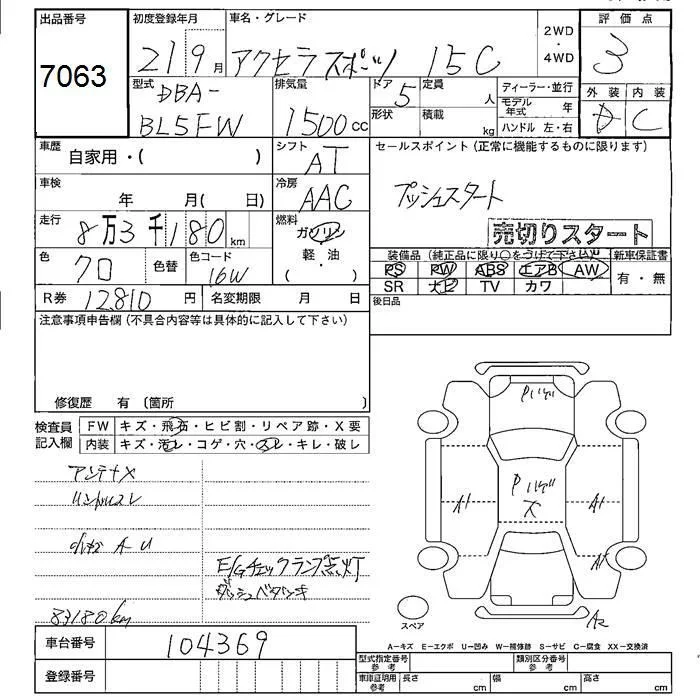 出品番号 初度登録年月 車名・グレード 2WD・4WD 評価点
7063 21 9月 アクセラスポーツ 15C 3
型式 DBA-BL5FW 排気量 1500cc ドア 5 定員 人 ディーラー・並行 外装 内装
形状 積載 kg モデル年式 年 ハンドル 左・右 D C
車歴 自家用・( ) シフト AT セールスポイント(正常に機能するものに限ります)
車検 年 月( 日) 冷房 AAC プッシュスタート
走行 8万3千180km 燃料 ガソリン 売切りスタート
軽・油 ( )
色 クロ 色替 色コード 16W 装備品(純正品に限り○をつけて下さい) 新車保証書
PS PW ABS エアB AW 有・無
SR ナビ TV カワ
R券 12810円 名変期限 月 日 後日品
注意事項申告欄(不具合内容等は具体的に記入して下さい)
修復歴 有 (箇所 )
検査員記入欄 FW キズ・飛石・ヒビ割・リペア跡・X要
内装 キズ・汚レ・コゲ・穴・スレ・キレ・破レ
アンテナX
ハンドルスレ
A-U
E/Gチェックランプ点灯
ダッシュベタツキ
83180km
Pハゲ
Pハゲ
X
A1 A1
A1
スペア
A2
車台番号 104369
登録番号
A-キズ E-エクボ U-凹み W-補修跡 S-サビ C-腐食 XX-交換済
型式指定番号 参考 類別区分番号 参考
車庫証明用 参考 長さ cm 幅 cm 高さ cm